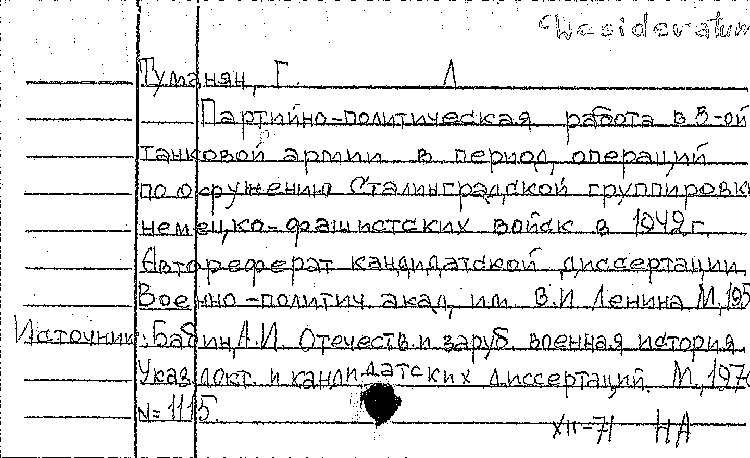 Desideratum
Туманян, Г. Л
Партийно-политическая работа в 3-ой
танковой армии в период операций
по окружению Сталинградской группировки
немецко-фашистских войск в 1942 г.
Автореферат кандидатской диссертации.
Военно-политич. акад. им. В.И. Ленина М, 195
Источник: Бабин, А.И. Отечеств. и заруб. военная история.
Указ. докт. и кандидатских диссертаций. М, 197
N= 1115.
XII-71 НА